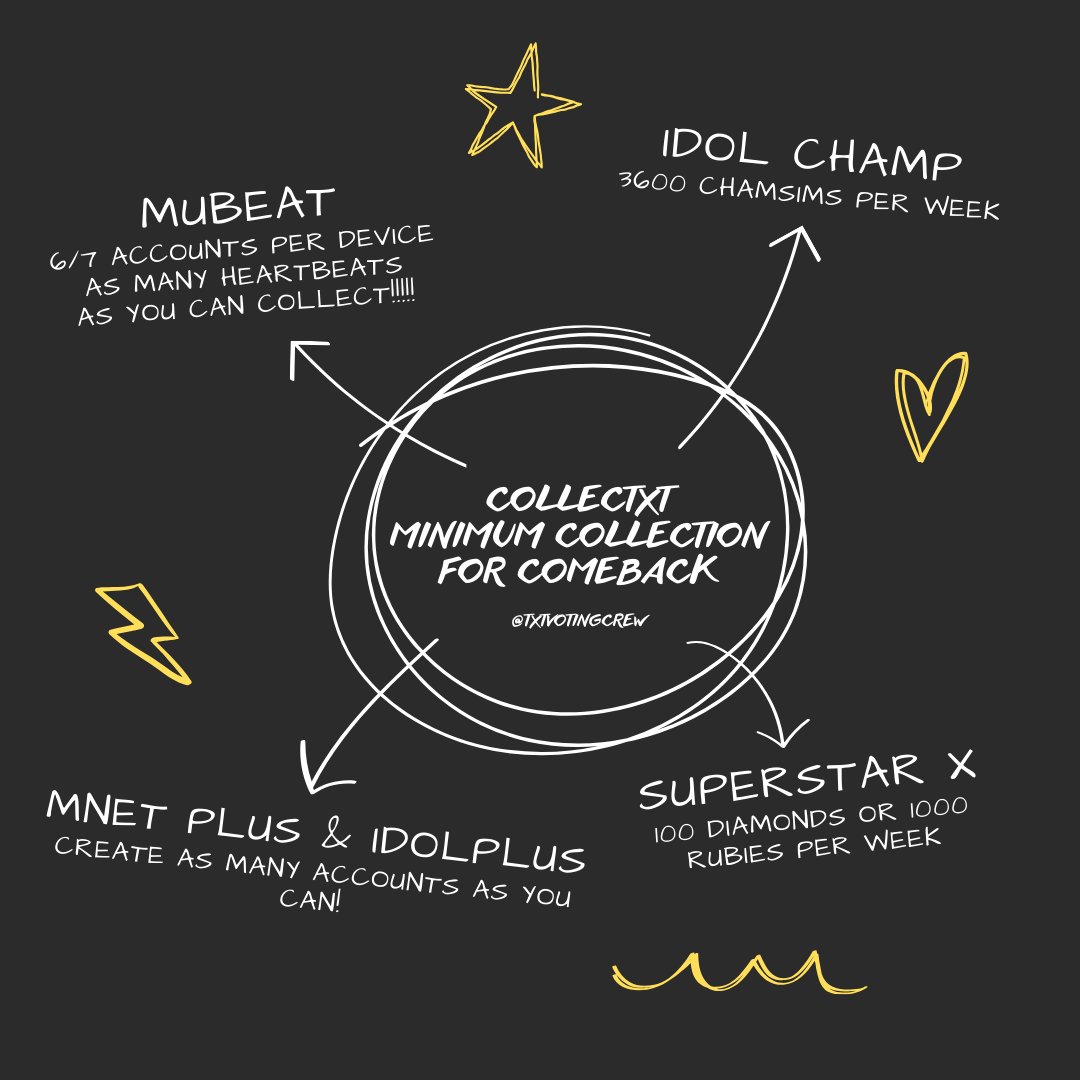 IDOL CHAMP
3600 CHAMSIMS PER WEEK
MUBEAT
6/7 ACCOUNTS PER DEVICE
AS MANY HEARTBEATS
AS YOU CAN COLLECT!!!!!
COLLECTXT
MINIMUM COLLECTION
FOR COMEBACK
@TXTVOTINGCREW
MNET PLUS & IDOLPLUS
CREATE AS MANY ACCOUNTS AS YOU
CAN!
SUPERSTAR X
100 DIAMONDS OR 1000
RUBIES PER WEEK